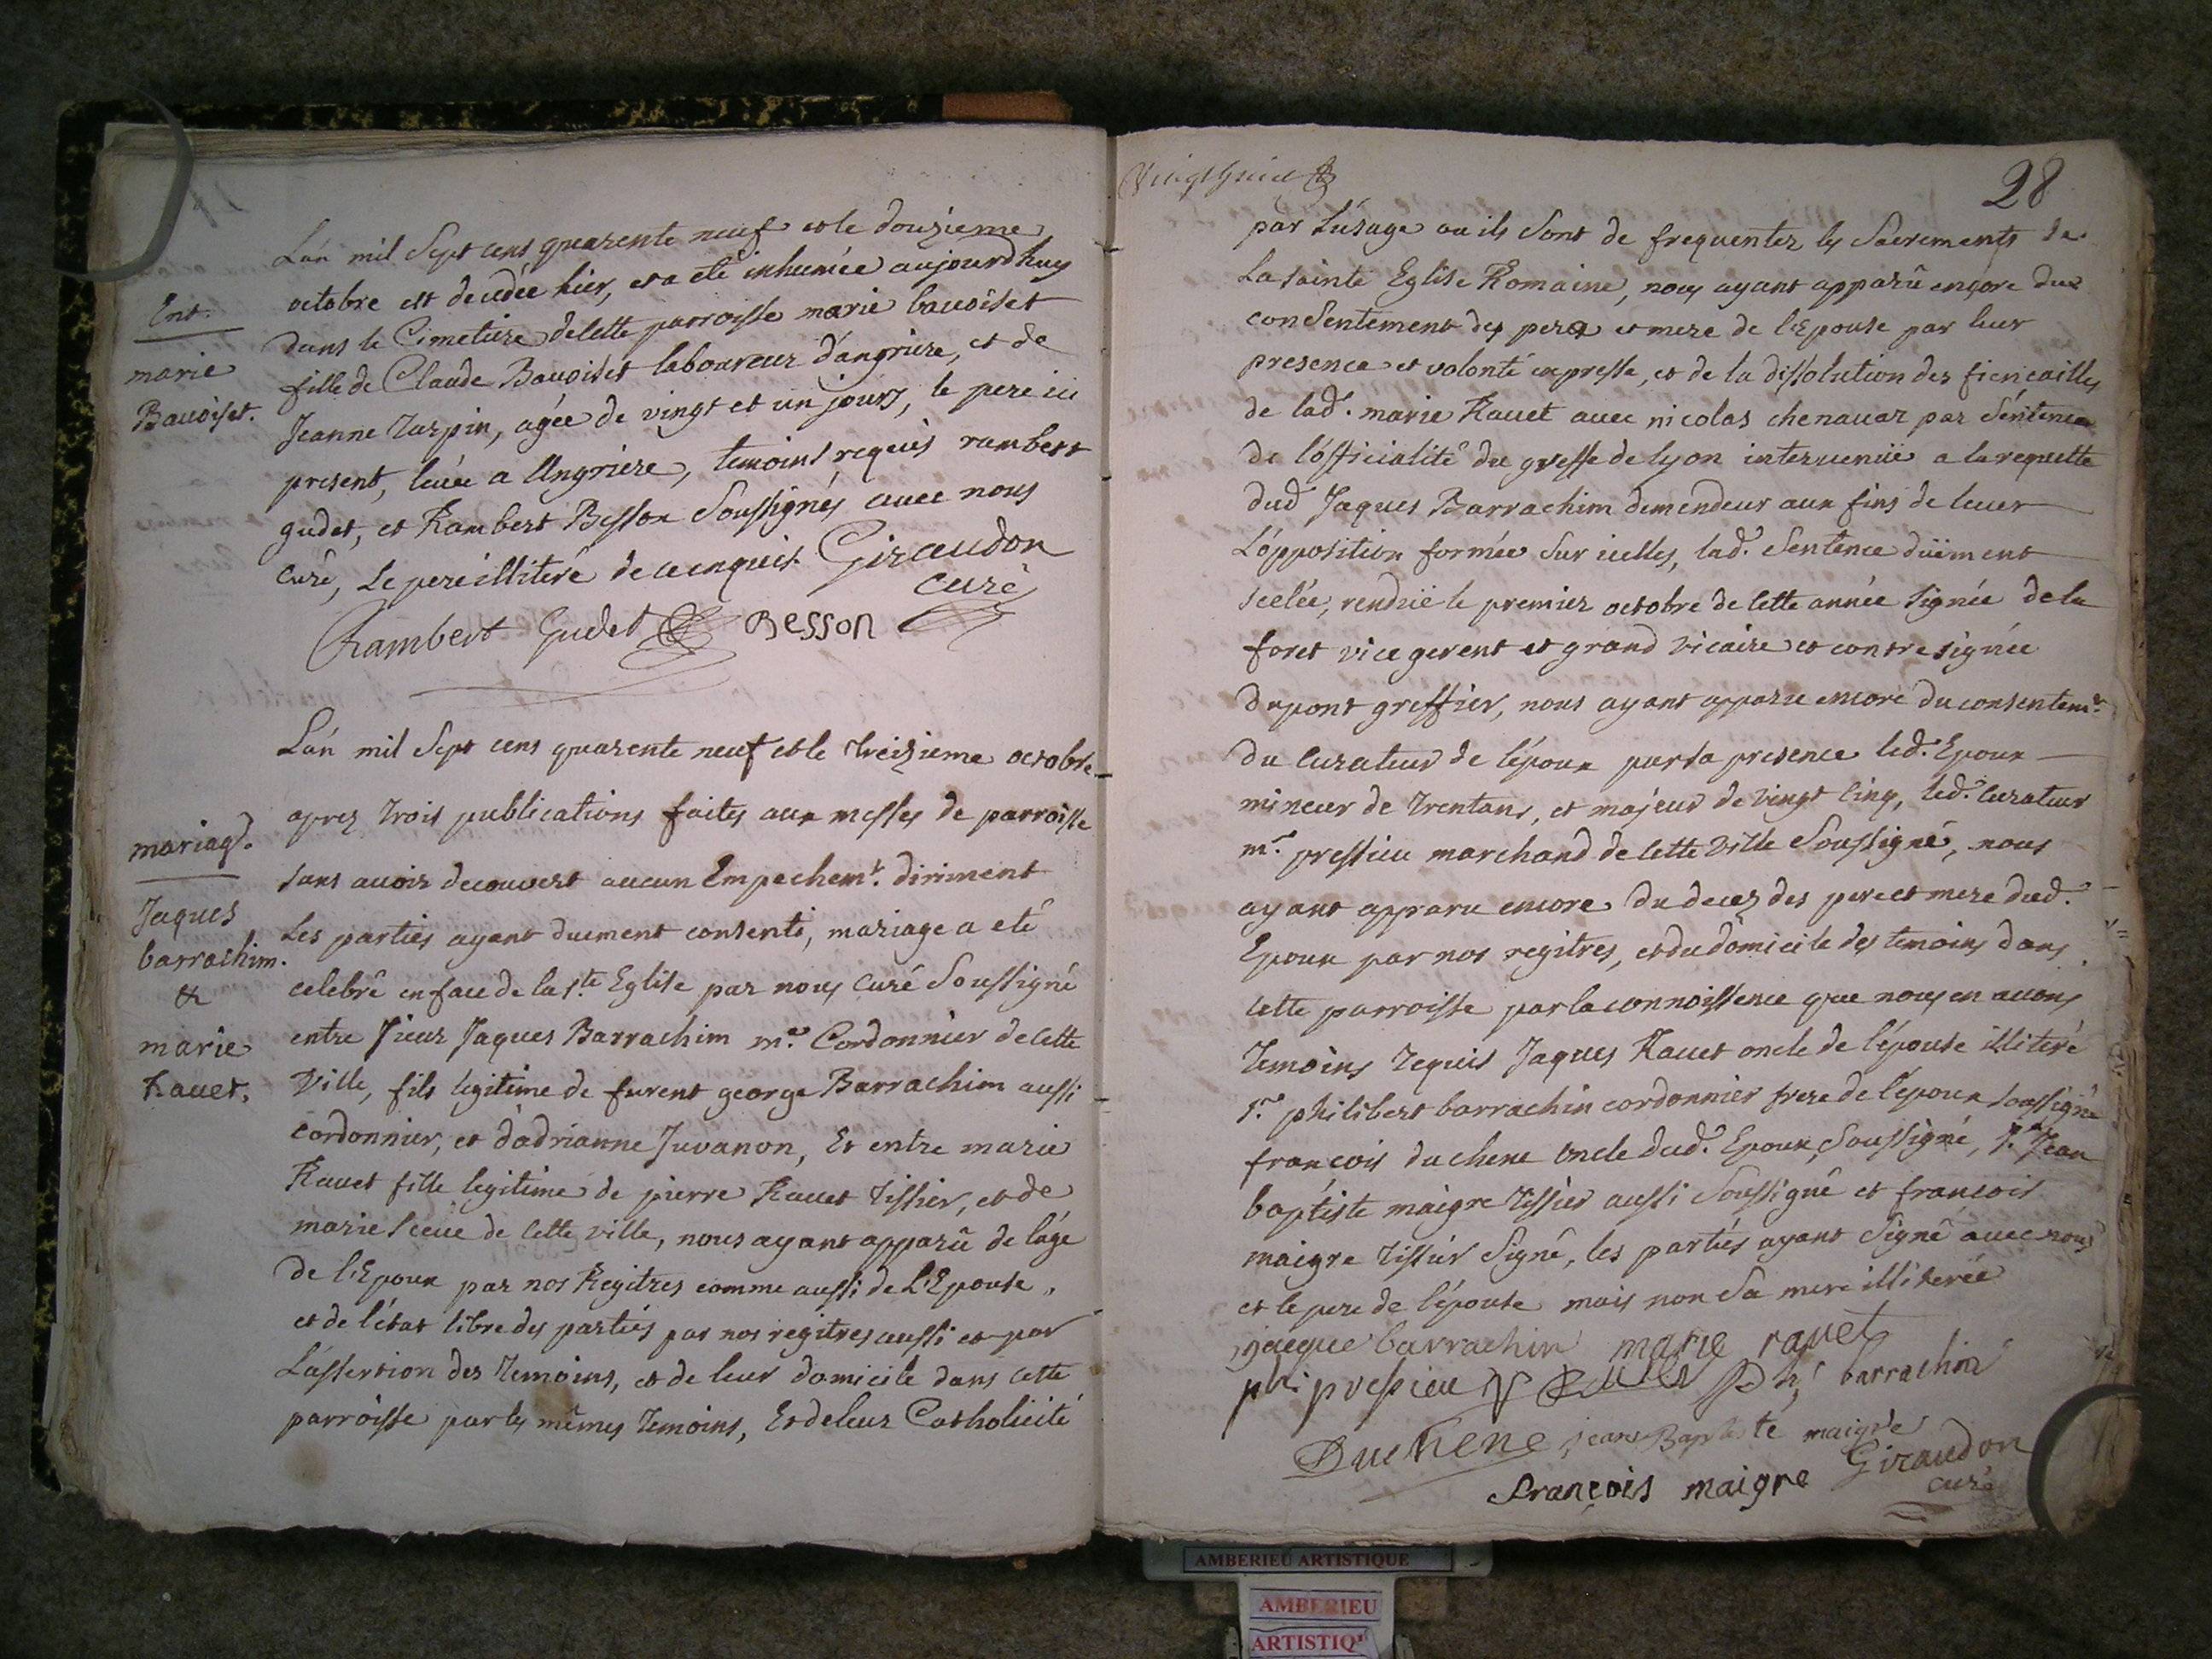 Ent.
marie
Bavoiset.
L'an mil Sept cens quarente neuf et le douzieme
octobre est decedée hier, et a eté inhumée aujourd'huy
dans le Cimetiere de Cette parroisse marie bavoiset
fille de Claude Bavoiset laboureur d'angriere, et de
Jeanne Tarpin, agée de vingt et un jours, le pere ici
present, levée a Angriere, temoins requis rambert
gudet, et Rambert Besson Soussignés avec nous
curé, Le pere illiteré de ce enquis. Giraudon
curé
Rambert Gudet Besson
mariag.
Jaques
barrachim.
&
marie
Ravet.
L'an mil Sept cens quarente neuf et le treizieme octobre
aprez trois publications faites aux messes de parroisse
sans avoir decouvert aucun Empechemt. diriment
Les parties ayant duement consenti, mariage a eté
celebré en face de la ste Eglise par nous curé Soussigné
entre sieur Jaques Barrachim me. Cordonnier de cette
Ville, fils legitime de furent george Barrachim aussi
cordonnier, et d'adrianne Juvanon, Et entre marie
Ravet fille legitime de pierre Ravet tissier, et de
marie de Cette ville, nous ayant apparû de l'age
de l'Epoux par nos Regitres comme aussi de L'Epouse,
et de l'état libre des parties par nos regitres aussi et par
L'assertion des temoins, et de leur domicile dans cette
parroisse par les mêmes temoins, Et de leur Catholicité
Vingthuict
28
par L'usage ou ils Sont de frequenter les Sacrements de
La sainte Eglise Romaine, nous ayant apparû encore du
consentement des pere et mere de l'Epouse par leur
presence et volonté expresse, et de la dissolution des fiencailles
de lad. marie Ravet avec nicolas chenavaz par Séntence
de l'officialité du greffe de lyon intervenüe a la requette
dud Jaques Barrachim demendeur aux fins de lever
L'opposition formée Sur icelles, lad. Sentence düement
scelée, rendüe le premier octobre de Cette année signée de la
foret vice gerent et grand vicaire et contresignée
dupont greffier, nous ayant apparu encore du consentemt.
du Curateur de l'époux par sa presence led. Epoux
mineur de trentans, et majeur de vingt cinq, led. Curateur
mr. pressieu marchand de Cette Ville Soussigné, nous
ayant apparu encore du decez des pere et mere dud.
Epoux par nos regitres, et du domicile des temoins dans
cette parroisse par la connoissence que nous en avons
Temoins requis Jaques Ravet oncle de l'épouse illiteré
sr. philibert barrachin cordonnier frere de l'epoux soussigné
françois duchene oncle dud. Epoux Soussigné, sr. Jean
baptiste maigre tissier aussi Soussigné et francois
maigre tissier Signé, les parties ayant Signé avec nous
et le pere de l'épouse mais non Sa mere illiterée
jacque barrachin marie ravet
phi presieu P Ravet Phi barrachin
Duchene jean Baptiste maigre
françois maigre Giraudon
curé
AMBERIEU ARTISTIQUE
AMBERIEU
ARTISTIQ